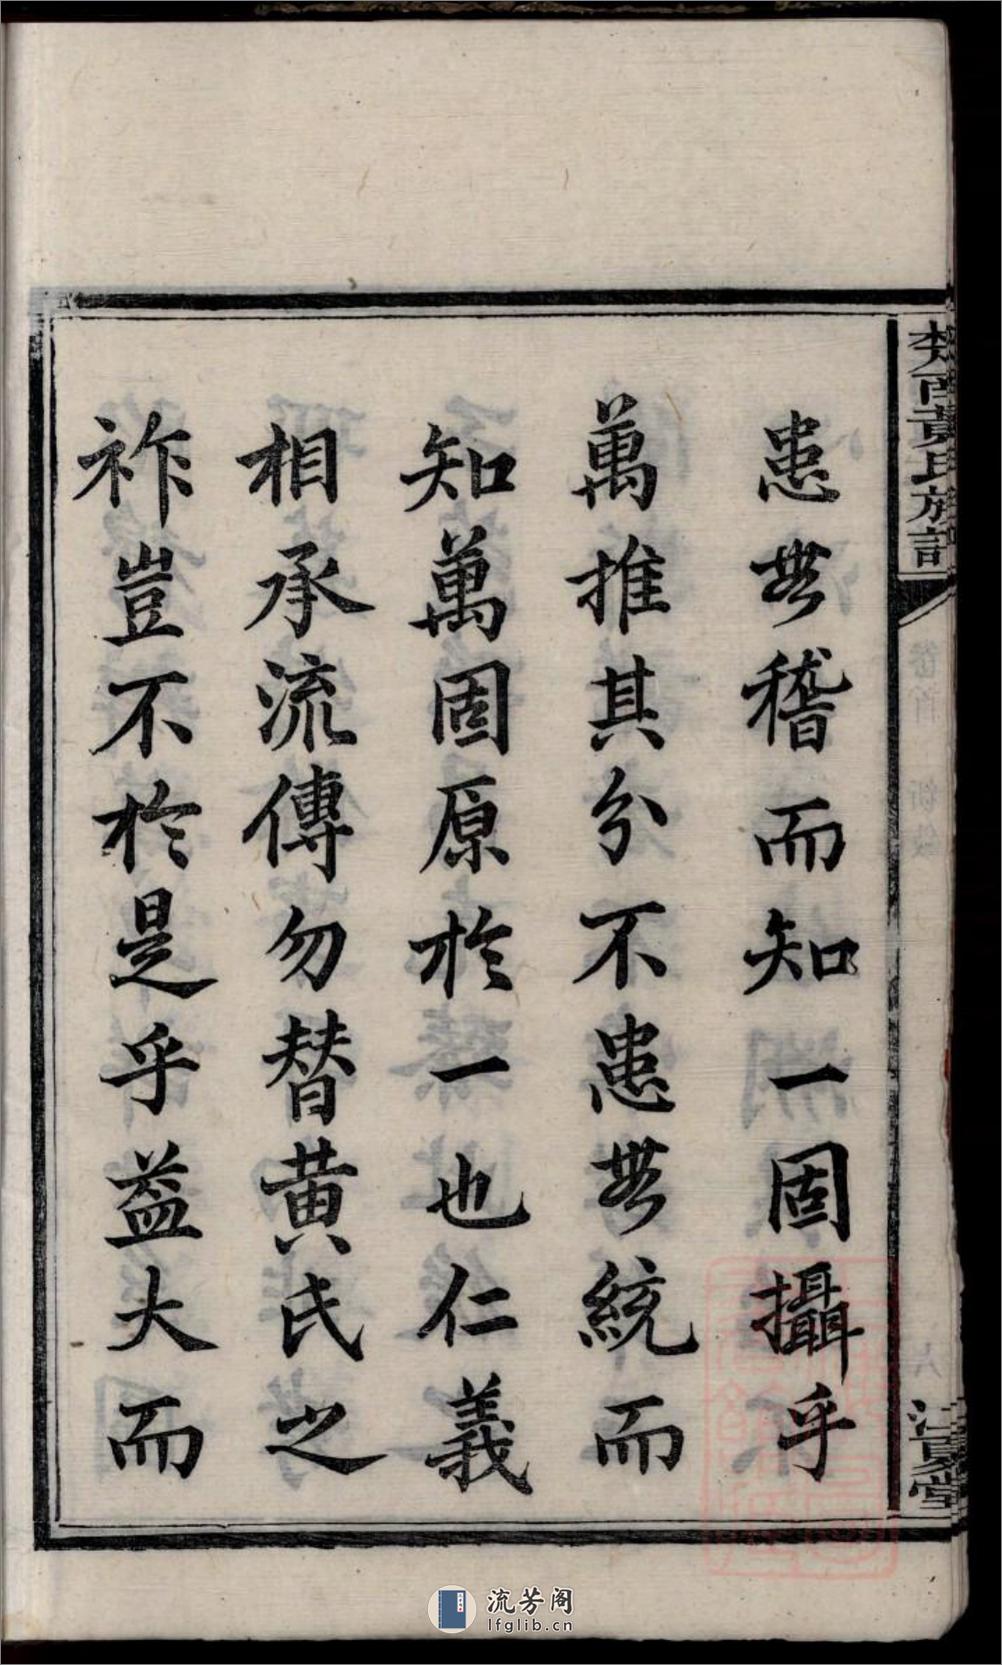 患無稽而知一固攝乎
萬推其分不患無統而
知萬固原於一也仁義
相承流傳勿替黄氏之
祚豈不於是乎益大而
黄氏族譜
流芳阁
lfglib.cn